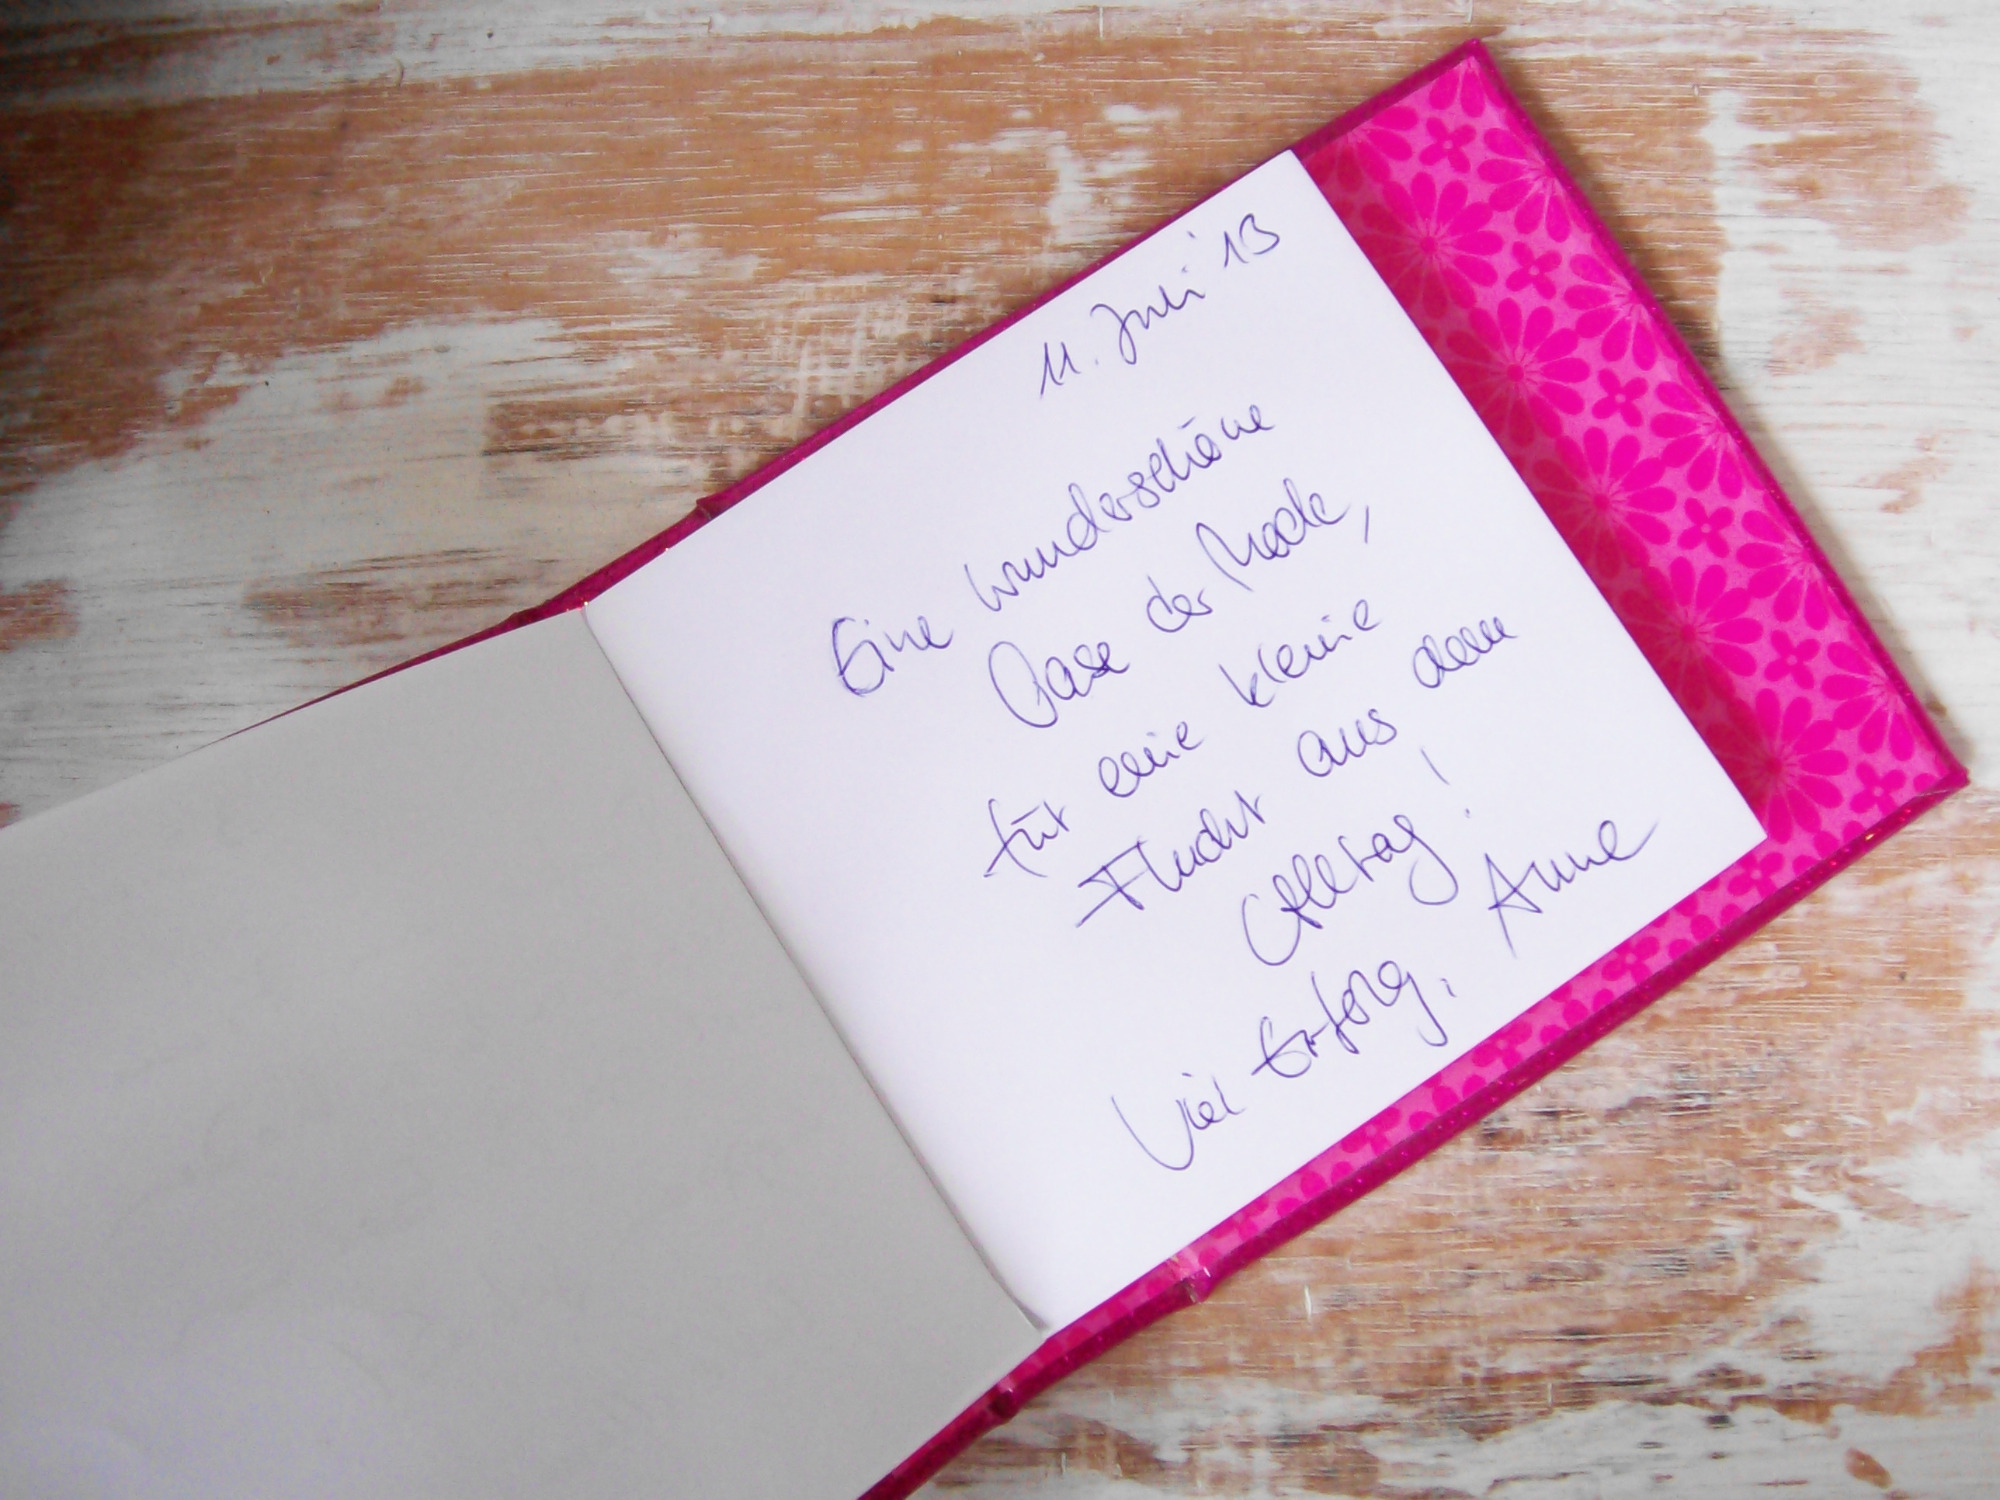 11. Juli '13
Eine wunderschöne
Oase der Mode,
für eine kleine
Flucht aus dem
Alltag!
Viel Erfolg. Anne